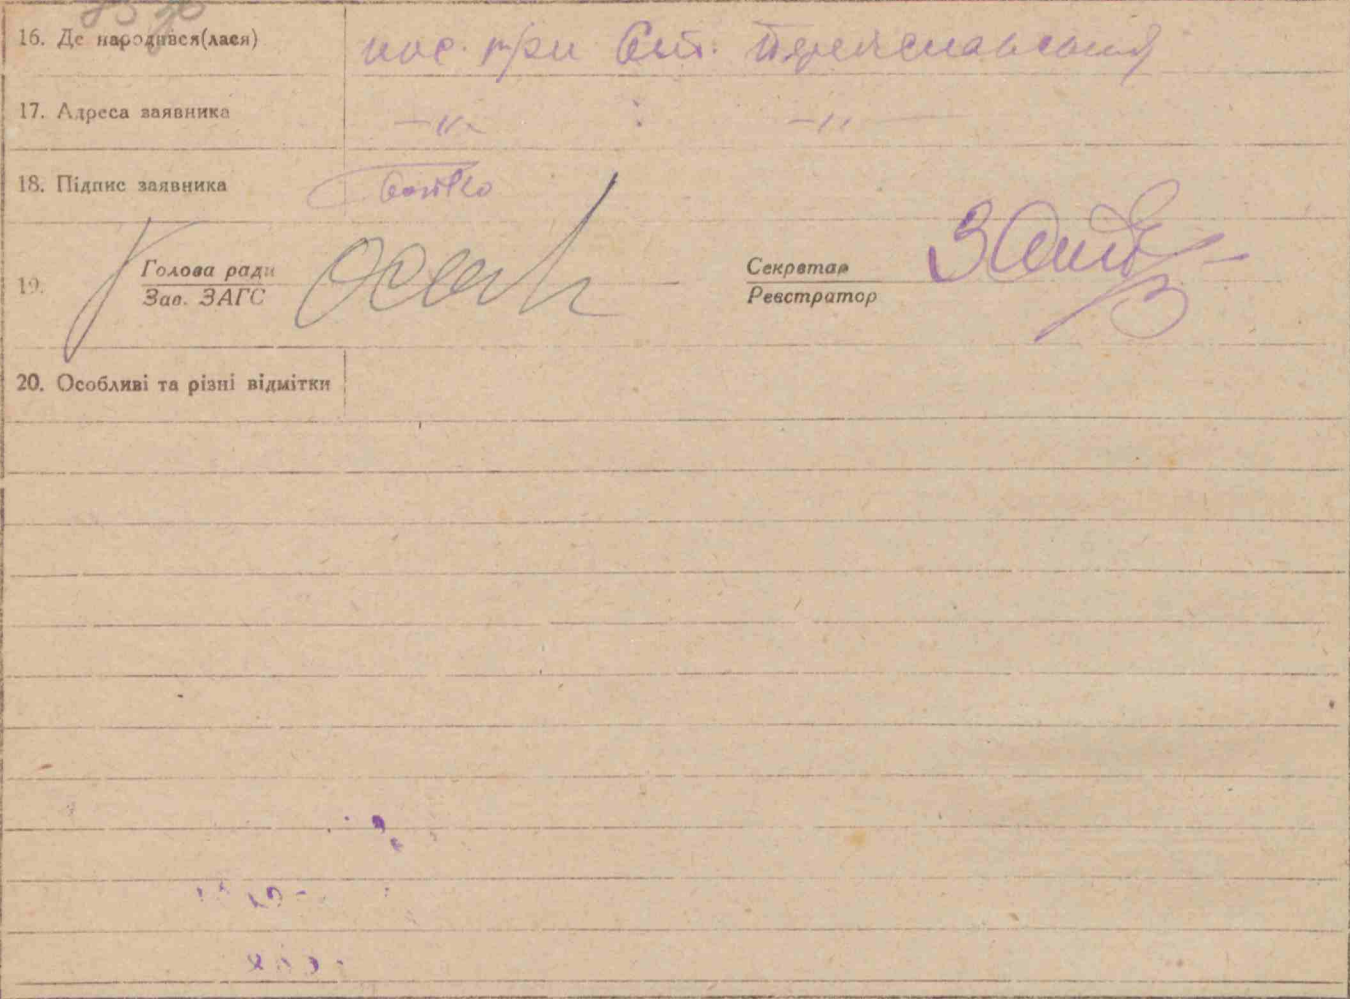 16. Де народився(лася) пос. при Ст. Переяславська
17. Адреса заявника —〃— : —〃—
18. Підпис заявника
19. Голова ради Секретар
Зав. ЗАГС Реєстратор
20. Особливі та різні відмітки